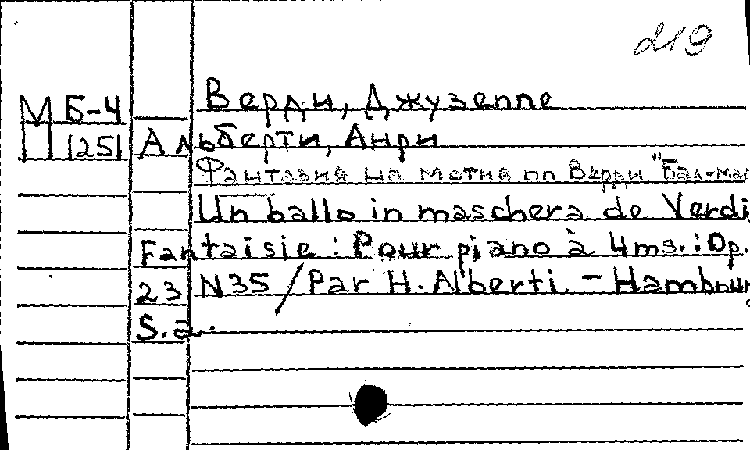 219
Верди, Джузеппе
М Б-4
П 1251 Альберти, Анри
Фантазия на мотив оп Верди "Бал-мас
Un ballo in maschera de Verdi
Fantaisie : Pour piano à 4ms. : Op.
23 N35 / Par H. Alberti. - Hambour
S.a.